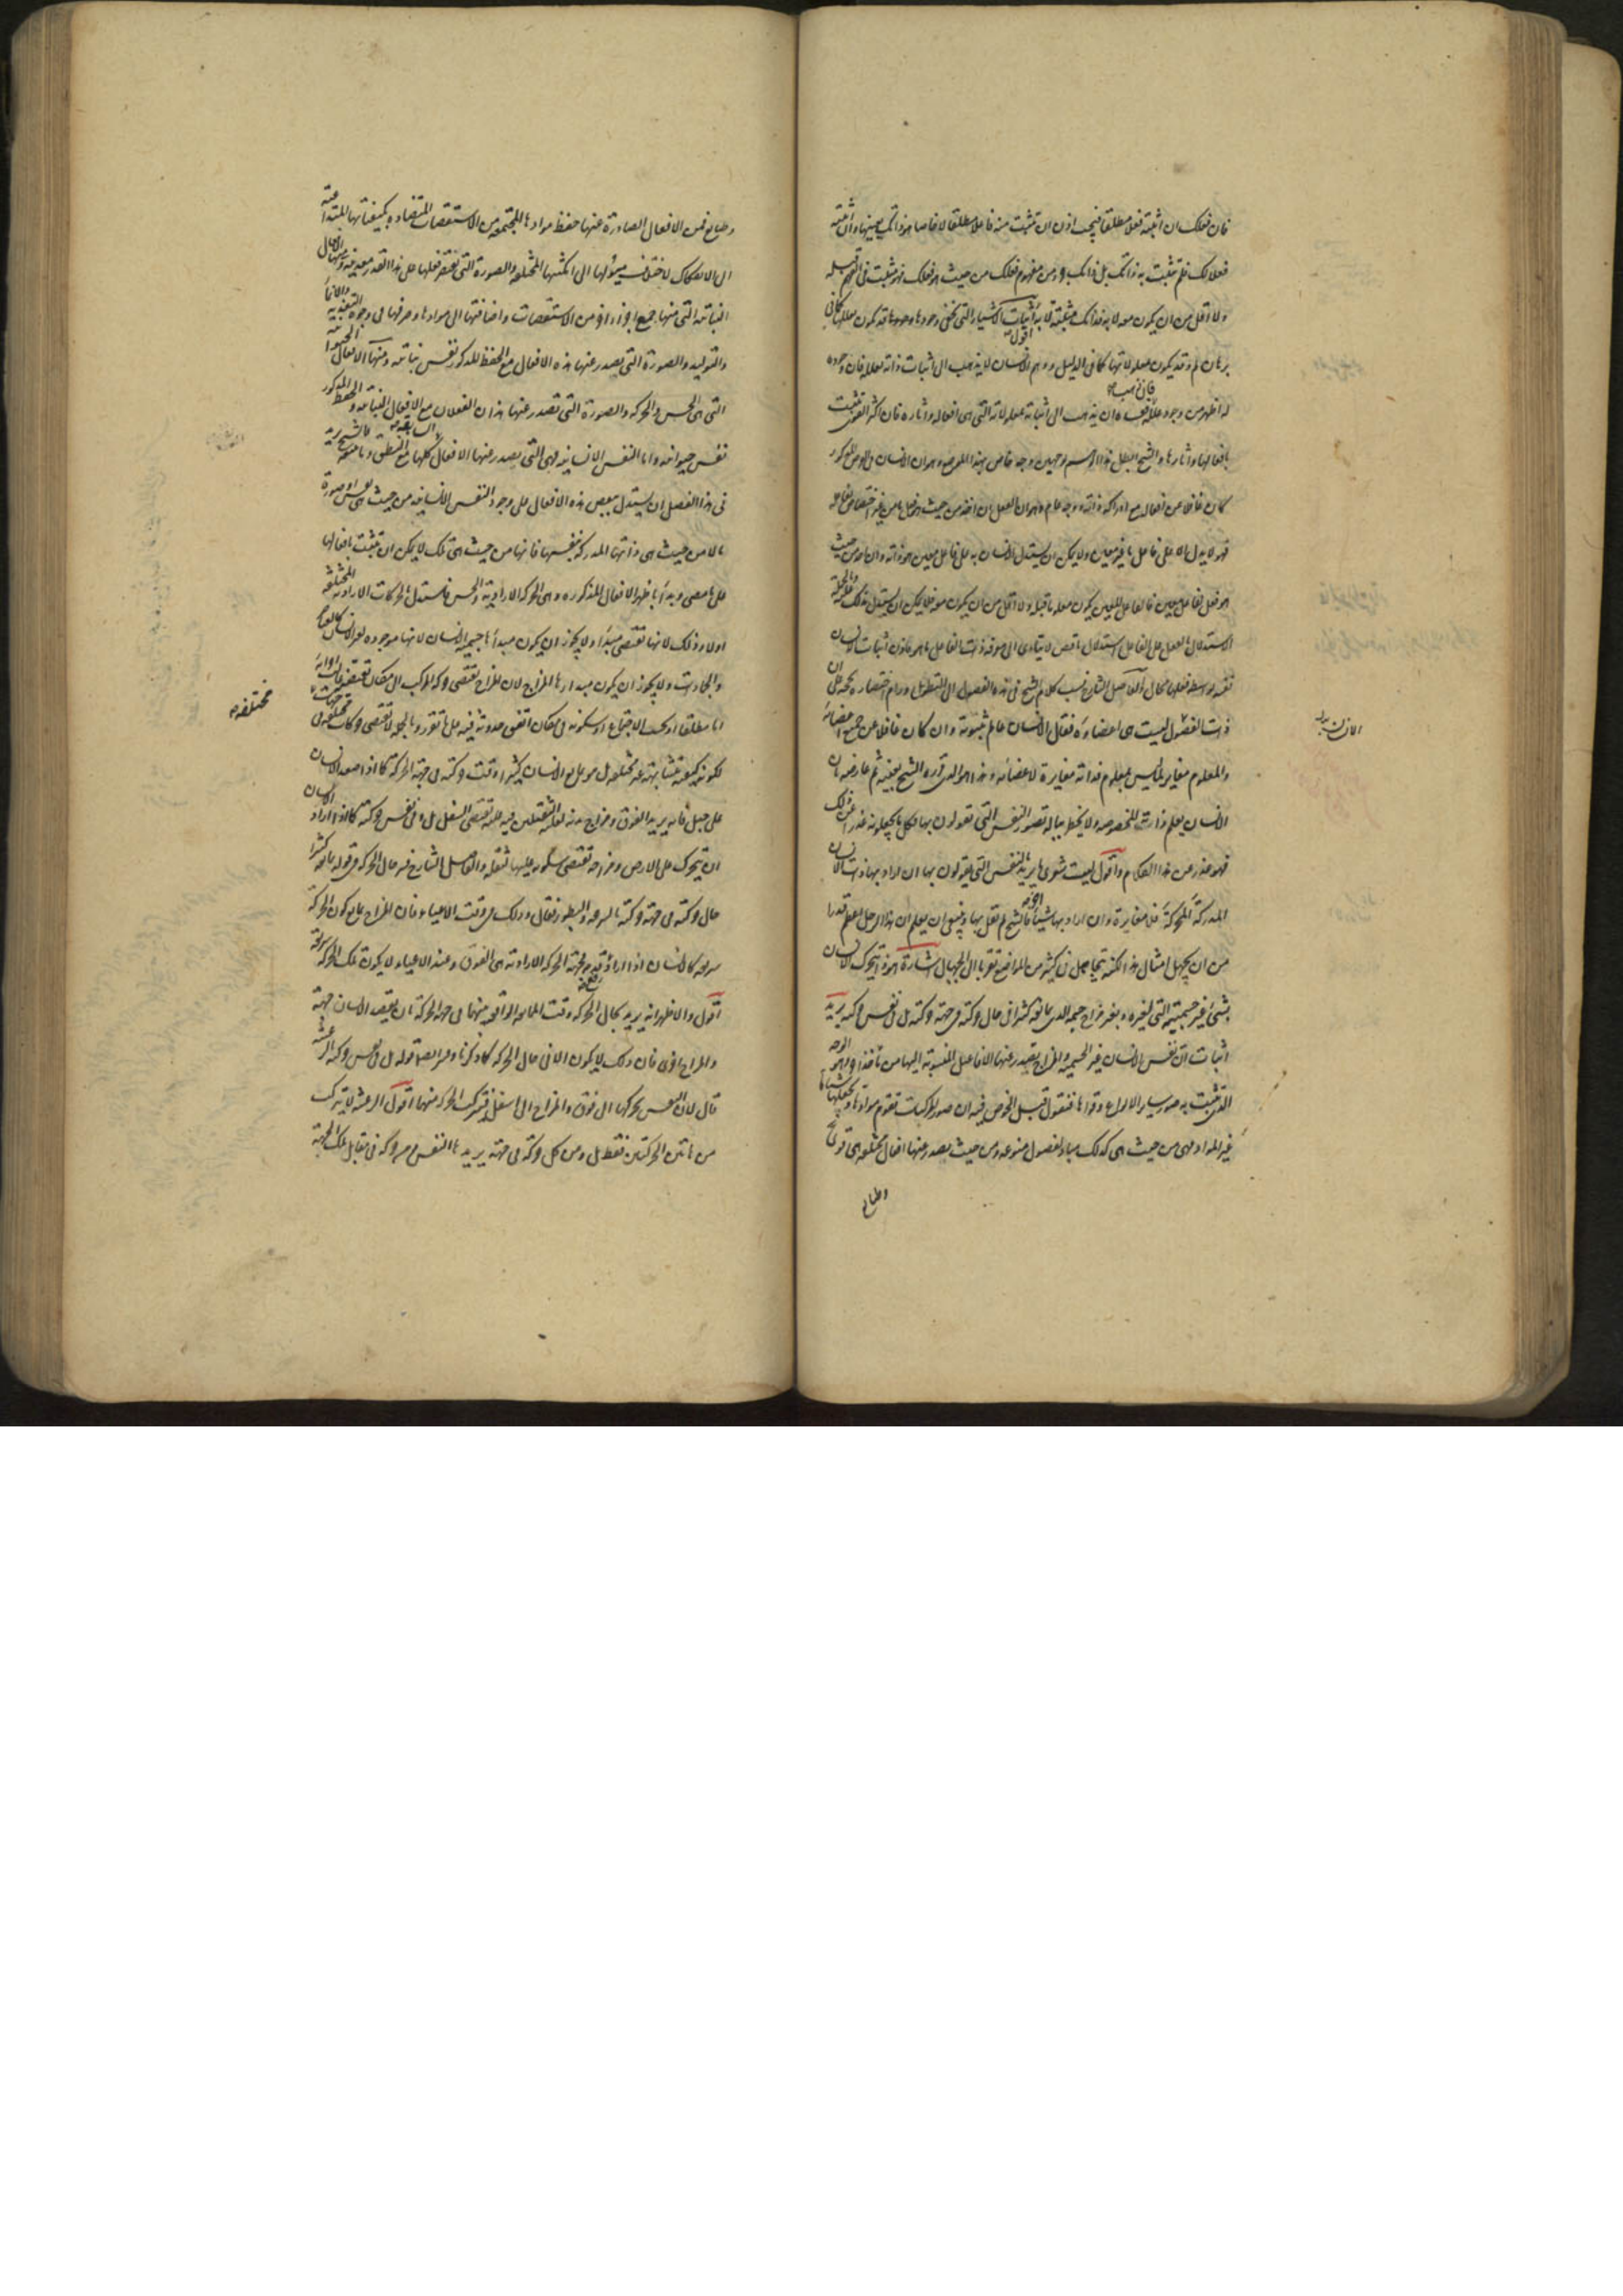 فان فعلك ان اثبته فعلا مطلقا فيجب اذن ان تثبت منه فاعلا مطلقا لا خاصا هو ذاتك بعينها وان اثبته
فعلا لك فلم تثبت به ذاتك بل ذاتك جزء من مفهوم فعلك من حيث هو فعلك فهو مثبت في الفهم قبله
ولا اقل من ان يكون معه لا به فذاتك مثبتة لا به اقول اثبات الاشياء التي تخفى وجودها قد يكون بعللها كما في
برهان لم وقد يكون بمعلولاتها كما في الدليل ووهم الانسان لا يذهب الى اثبات ذاته بعلله فان وجوده
له اظهر من وجود علله فان ذهب فعساه ان يذهب الى اثباته بمعلولاته التي هي افعاله واثاره فان اكثر القوى تثبت
بافعالها واثارها والشيخ ابطل هذا الوهم بوجهين وجه خاص بهذا الموضع وهو ان الانسان في الفرض المذكور
كان غافلا عن افعاله مع ادراكه ذاته ووجه عام وهو ان الفعل ان اخذ من حيث هو فعل ما من غير اختصاص بفاعله
فهو لا يدل الا على فاعل ما غير معين ولا يمكن ان يستدل الانسان به على فاعل معين هو ذاته وان اخذ من حيث
هو فعل لفاعل معين فالفاعل المعين يكون معلوما قبله ولا اقل من ان يكون معه فلا يمكن ان يستدل بذلك عليه وبالجملة
الاستدلال بالفعل على الفاعل استدلال ناقص لا يتادى الى معرفة ذات الفاعل ما هو فاذن اثبات الانسان
نفسه بوسط فعله محال والفاضل الشارح نسب كلام الشيخ في هذه الفصول الى التطويل ورام اختصاره بحجة على ان
ذات الانسان ليست هي اعضاءه فقال الانسان عالم بثبوته وان كان غافلا عن جميع اعضائه
والمعلوم مغاير لما ليس بمعلوم فذاته مغايرة لاعضائه وهذا هو الذي قرره الشيخ بعينه ثم عارضه بان
الانسان يعلم ذاته المخصوصة ولا يخطر بباله تصور النفس التي تقولون بها فكل ما يجعلونه عذرا عن ذلك
فهو عذر عن هذا الكلام واقول ليت شعري ما يريد بالنفس التي يقولون بها ان اراد بها ذات الانسان
المدركة المحركة فلا مغايرة وان اراد بها شيئا اخر فالشيخ لم يقل بها وينبغي ان يعلم ان هذا الرجل اعظم قدرا
من ان يجهل امثال هذا لكنه يتجاهل في كثير من المواضع تقربا الى الجهال اشارة هوذا يتحرك الانسان
بشيء غير جسميته التي لغيره وبغير مزاج جسمه الذي يمانعه كثيرا في حال حركته في جهة حركته بل في نفس حركته يريد
اثبات ان نفس الانسان غير الجسمية والمزاج تصدر عنها الافاعيل المنسوبة اليها من مأخذ اخر وهو الوجه
الذي تثبت به صور سائر الانواع وقواها فنقول قبل الخوض فيه ان صور المركبات تقوم موادها وتجعلها شيئا ما
غير المواد فهي من حيث هي كذلك مباد لفصول منوعة ومن حيث يصدر عنها افعال مختلفة هي قوى
وطبايع
الانسان بدله
وطبايع فمن الافعال الصادرة عنها حفظ موادها المجتمعة من الاستقصات المتضادة بكيفياتها المتداعية
الى الانفكاك لاختلاف ميولها الى امكنتها المختلفة والصورة التي يقتصر فعلها على هذا القدر معدنية ومنها الافعال
النباتية التي منها جمع اجزاء اخر من الاستقصات واضافتها الى موادها وصرفها في وجوه التغذية والانماء
والتوليد والصورة التي يصدر عنها هذه الافعال مع الحفظ المذكور نفس نباتية ومنها الافعال الحيوانية
التي هي الحس والحركة والصورة التي تصدر عنها هذان الفعلان مع الافعال النباتية والحفظ المذكور
نفس حيوانية واما النفس الانسانية فهي التي يصدر عنها الافعال السابقة كلها مع النطق وما يتبعه فالشيخ يريد
في هذا الفصل ان يستدل ببعض هذه الافعال على وجود النفس الانسانية من حيث هي نفس او صورة
ما لا من حيث هي ذاتها المدركة بنفسها فانها من حيث هي تلك لا يمكن ان تثبت بافعالها
على ما مضى وبدأ باظهر الافعال المذكورة وهي الحركة الارادية والحس فاستدل بالحركات الارادية المختلفة
اولا وذلك لانها تقتضي مبدأ ولا يجوز ان يكون مبدأها جسمية الانسان لانها موجودة لغير الانسان كالعناصر
والجمادات ولا يجوز ان يكون مبدأها المزاج لان المزاج يقتضي حركة المركب الى مكان يقتضيه غالب اجزائه
اما مطلقا او بحسب الاجتماع او سكونه في مكان اتفق حدوثه فيه على ما تقرر وبالجملة لا يقتضي حركات مختلفة في جهات
لكونه كيفية متشابهة غير مختلفة بل هو يمانع الانسان كثيرا وقت حركته في جهة الحركة كما اذا صعد الانسان
على جبل فانه يريد الفوق ومزاج بدنه لغلبة الثقيلين فيه يقتضي السفل بل وفي نفس حركته كما اذا اراد الانسان
ان يتحرك على الارض ومزاجه يقتضي سكونه عليها لثقله والفاضل الشارح فسر حال الحركة في قوله يمانعه كثيرا
حال حركته في جهة حركته بالسرعة والبطؤ فقال وذلك في وقت الاعياء فان المزاج يمانع كون الحركة
سريعة كالانسان اذا اراد رفع قدمه فجهة الحركة الارادية هي الفوق وعند الاعياء لا يكون تلك الحركة سريعة
اقول والاظهر انه يريد بحال الحركة وقت الممانعة الواقعة بينهما في جهة الحركة بان يقصد الانسان جهة
والمزاج اخرى فان ذلك لا يكون الا في حال الحركة كما ذكرنا وفسر ايضا قوله بل في نفس حركته بالرعشة
قال لان النفس تحركها الى فوق والمزاج الى اسفل فيتركب الحركة منهما اقول الرعشة لا تتركب
من هاتين الحركتين فقط بل ومن كل حركة في جهة يريدها النفس ومن حركة في مقابل تلك الجهة
مختلفة